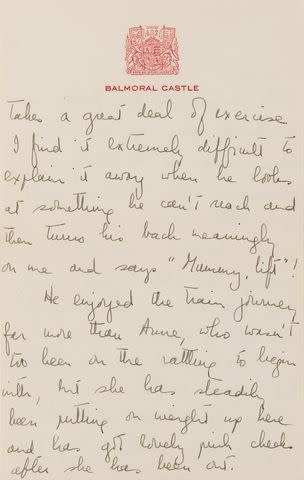 BALMORAL CASTLE
takes a great deal of exercise
I find it extremely difficult to
explain it away when he looks
at something he can't reach and
then turns his back meaningly
on me and says "Mummy, lift"!
He enjoyed the train journey
far more than Anne, who wasn't
too keen on the rattling to begin
with, but she has steadily
been putting on weight up here
and has got lovely pink cheeks
after she has been out.